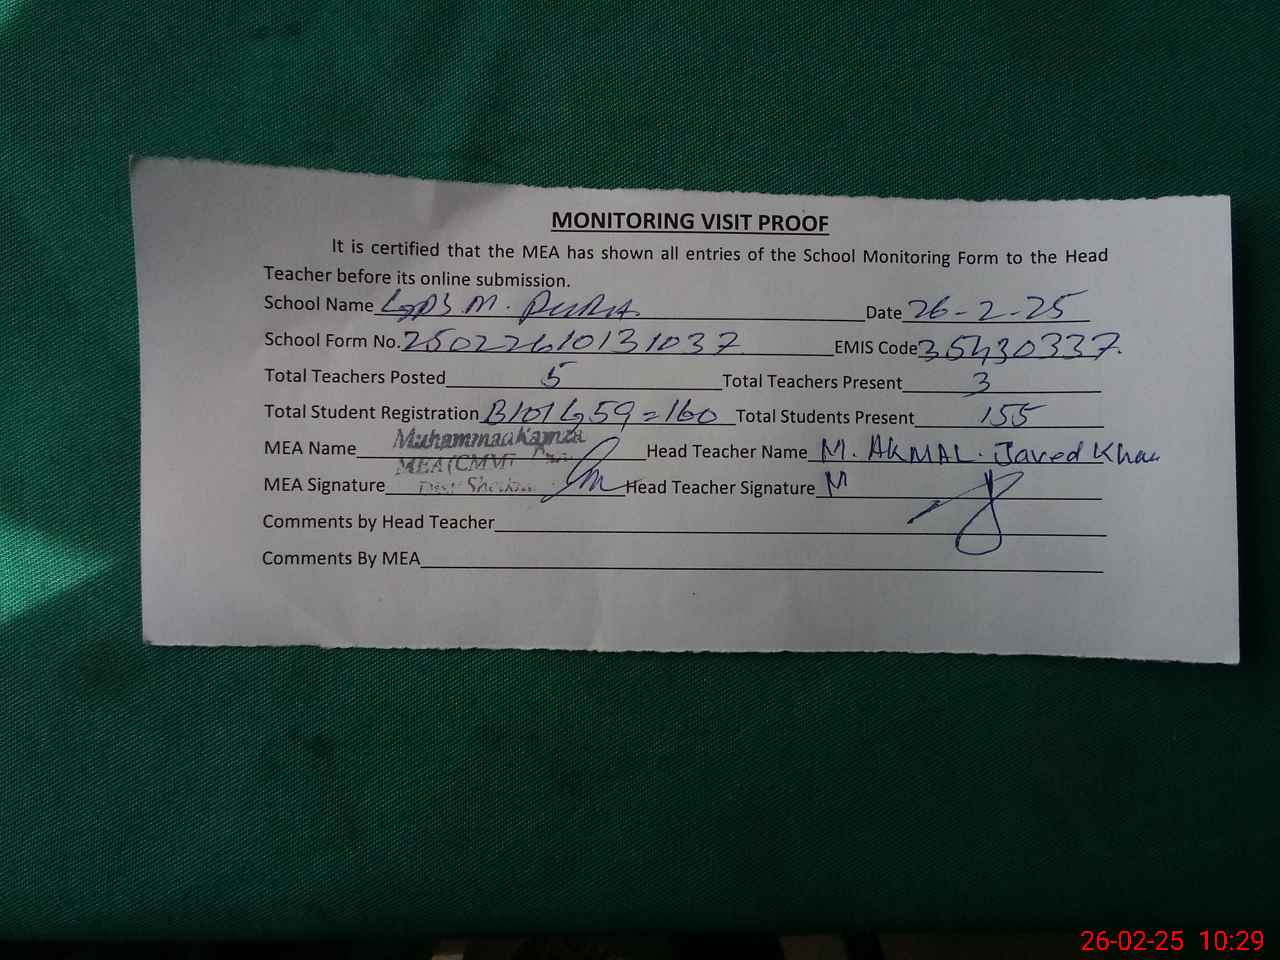 MONITORING VISIT PROOF
It is certified that the MEA has shown all entries of the School Monitoring Form to the Head
Teacher before its online submission.
School Name GPS M. PURA Date 26-2-25
School Form No. 25022610131037 EMIS Code 35430337
Total Teachers Posted 5 Total Teachers Present 3
Total Student Registration B101 G59=160 Total Students Present 155
MEA Name Muhammad Head Teacher Name M. AKMAL. Javed Khan
MEA (CMMF
MEA Signature Head Teacher Signature M
Comments by Head Teacher
Comments By MEA
26-02-25 10:29